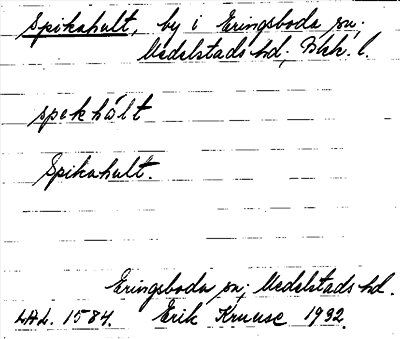 Spikahult, by i Eringsboda sn,
Medelstads hd, Blek. l.
spekhålt
Spikahult.
Eringsboda sn, Medelstads hd.
LAL. 1584. Erik Kruuse 1932.